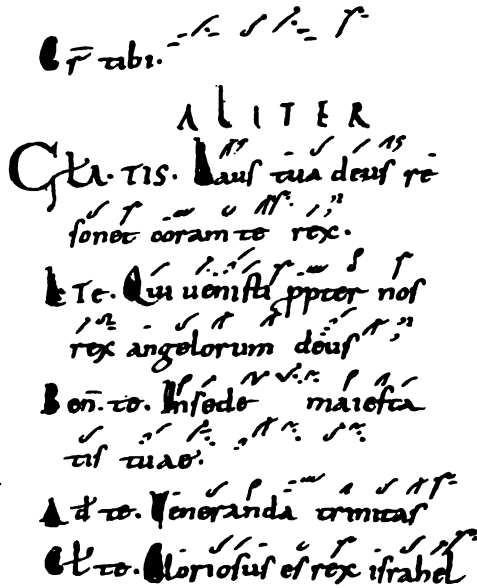 Gr̄ tibi.
ALITER
Gła. TIS. Laus tua deus re
sonet coram te rex.
Le Te. Qui uenisti ppter nos
rex angelorum deus
Ben̄. te. Insede maiesta
tis tuae.
Ad te. Veneranda trinitas
Gł. te. Gloriosus es rex israhel